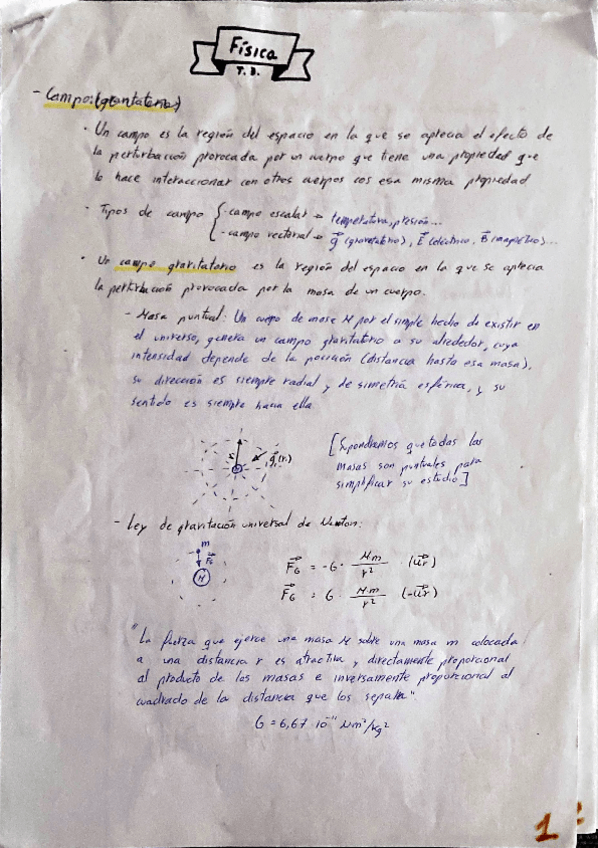 Física
T.B.
- Campo: (gravitatorio)
· Un campo es la región del espacio en la que se aprecia el efecto de
la perturbación provocada por un cuerpo que tiene una propiedad que
lo hace interaccionar con otros cuerpos con esa misma propiedad
· Tipos de campo { - campo escalar → temperatura, presión...
- campo vectorial → g⃗ (gravitatorio), E⃗ (eléctrico), B⃗ (magnético)...
· Un campo gravitatorio es la región del espacio en la que se aprecia
la perturbación provocada por la masa de un cuerpo.
- Masa puntual: Un cuerpo de masa M por el simple hecho de existir en
el universo, genera un campo gravitatorio a su alrededor, cuya
intensidad depende de la posición (distancia hasta esa masa),
su dirección es siempre radial y de simetría esférica, y su
sentido es siempre hacia ella
[Supondremos que todas las
masas son puntuales para
simplificar su estudio]
- Ley de gravitación universal de Newton:
m
F⃗G
M
F⃗G = -G · M·m / r² · (u⃗r)
F⃗G = G · M·m / r² (-u⃗r)
"La fuerza que ejerce una masa M sobre una masa m colocada
a una distancia r es atractiva y directamente proporcional
al producto de las masas e inversamente proporcional al
cuadrado de la distancia que los separa"
G = 6,67 · 10⁻¹¹ Nm²/kg²
1